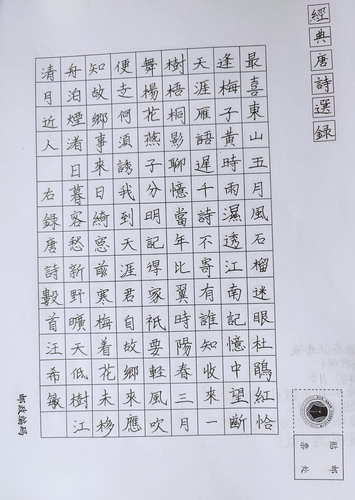 經典唐詩選錄
最喜東山五月風石榴迷眼杜鵑紅恰
逢梅子黃時雨濕透江南記憶中望斷
天涯雁語遲千詩不寄有誰知收來一
樹梧桐影聊憶當年比翼時陽春三月
舞楊花燕子分明記得家祇要輕風吹
便去何須誘我到天涯君自故鄉來應
知故鄉事來日綺窓前寒梅着花未移
舟泊煙渚日暮客愁新野曠天低樹江
清月近人 右錄唐詩數首汪希敏
郵票
貼處